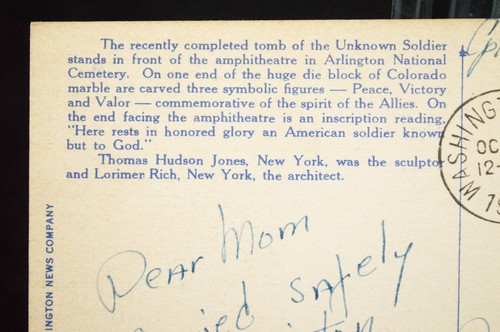 The recently completed tomb of the Unknown Soldier
stands in front of the amphitheatre in Arlington National
Cemetery. On one end of the huge die block of Colorado
marble are carved three symbolic figures — Peace, Victory
and Valor — commemorative of the spirit of the Allies. On
the end facing the amphitheatre is an inscription reading,
"Here rests in honored glory an American soldier known
but to God."
Thomas Hudson Jones, New York, was the sculptor
and Lorimer Rich, New York, the architect.
WASHINGT
OC
12-
19
INGTON NEWS COMPANY
Dear Mom
safely